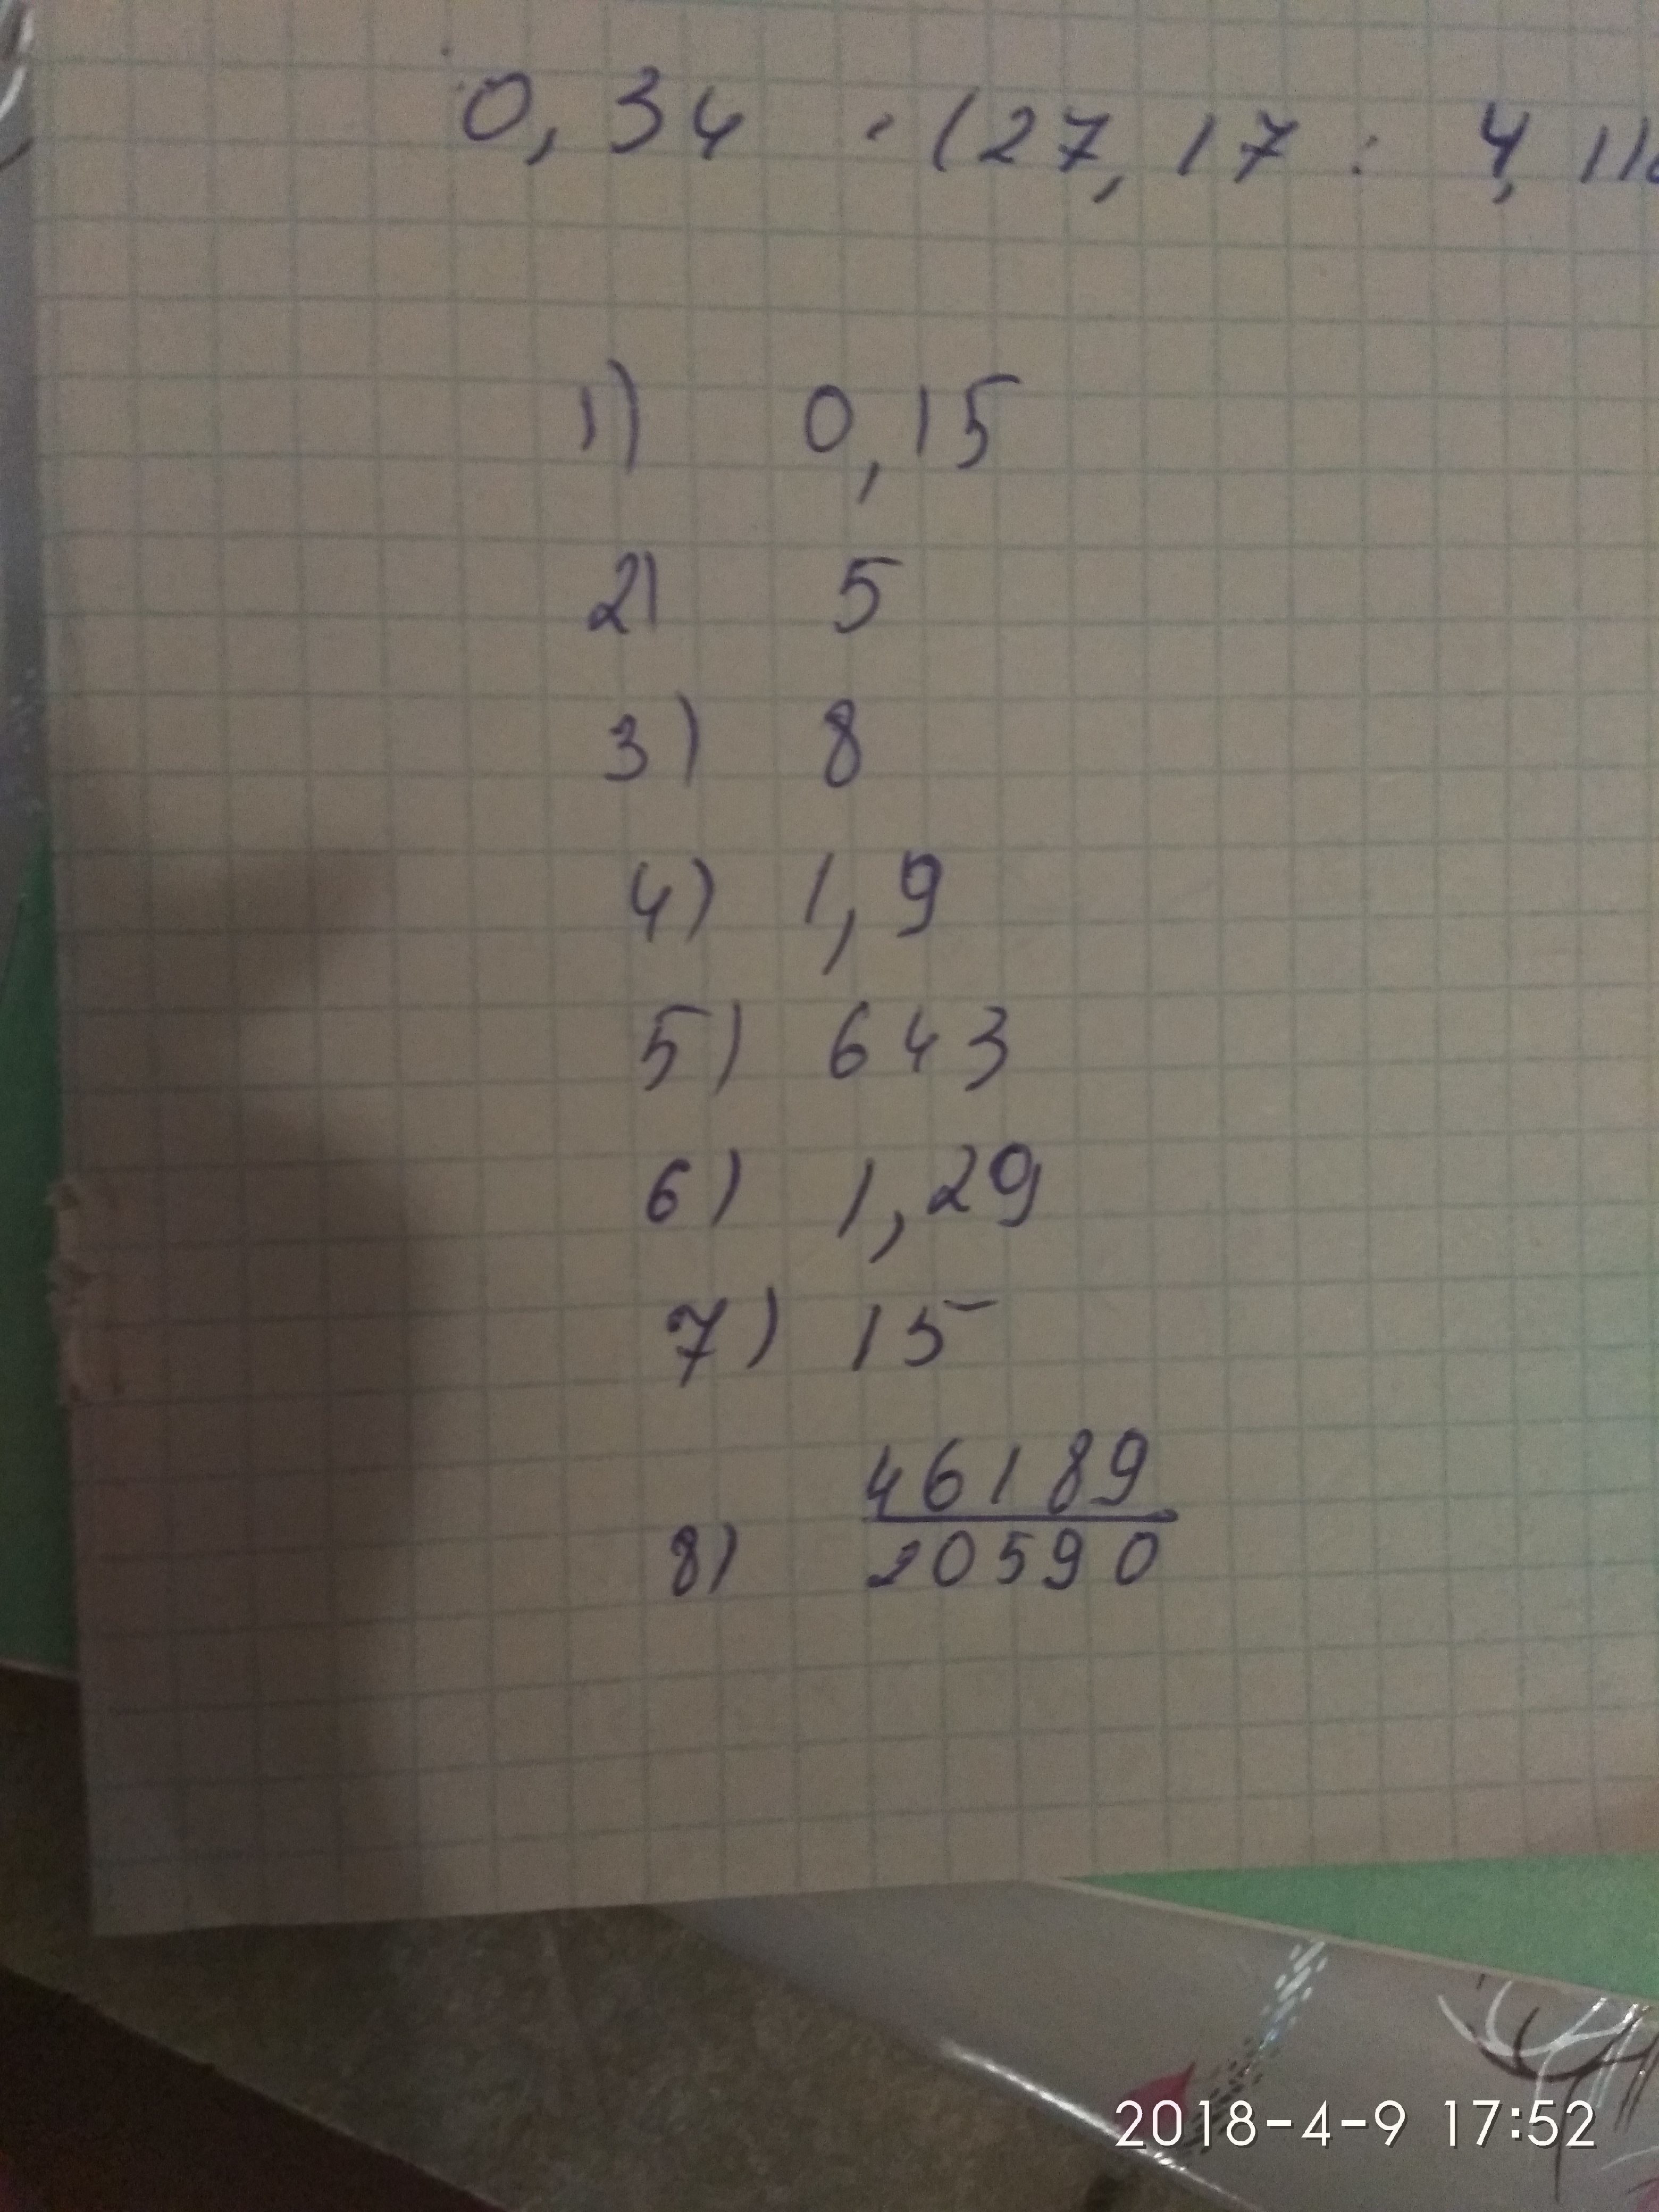 0,34 · (27,17 : 4,11
1) 0,15
2) 5
3) 8
4) 1,9
5) 643
6) 1,29
7) 15
46189
8) 20590
2018-4-9 17:52